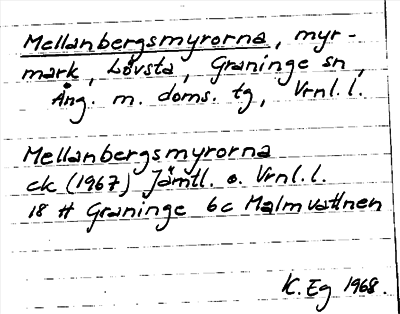 Mellanbergsmyrorna, myr-
mark, Lövsta, Graninge sn,
Ång. m. doms. tg, Vrnl.l.
Mellanbergsmyrorna
ck (1967) Jämtl. o. Vrnl.l.
18 H Graninge 6c Malmvattnen
K. Eg 1968.